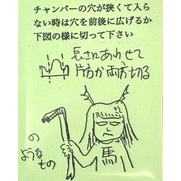 チャンバーの穴が狭くて入ら
ない時は穴を前後に広げるか
下図の様に切って下さい
長さあわせて
片方か両方切る
の
ようなもの
馬